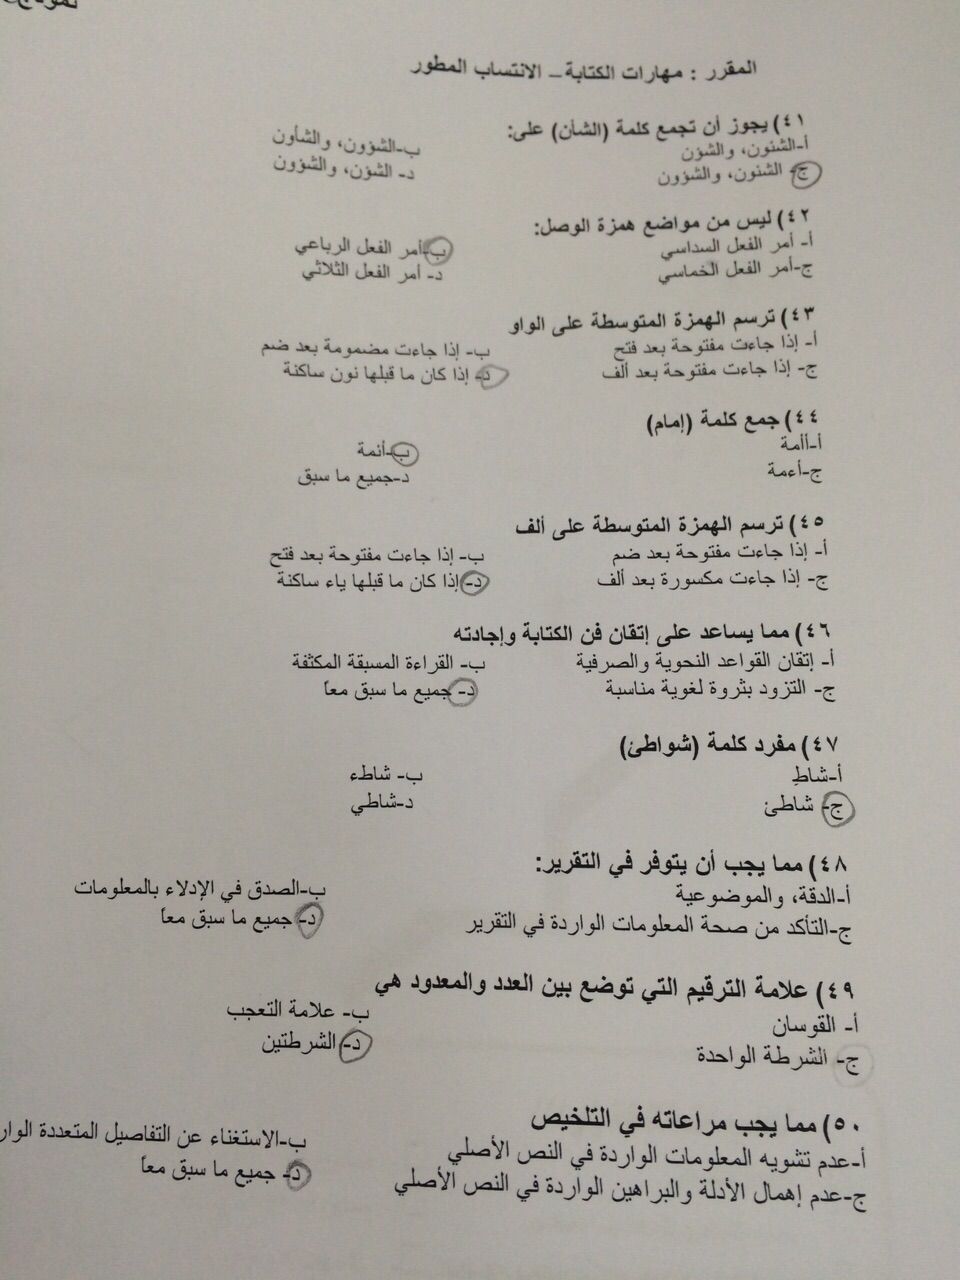 المقرر : مهارات الكتابة – الانتساب المطور
٤١) يجوز أن تجمع كلمة (الشأن) على:
أ-الشئون، والشؤن ب-الشؤون، والشأون
ج- الشئون، والشؤون د- الشؤن، والشؤون
٤٢) ليس من مواضع همزة الوصل:
أ- أمر الفعل السداسي ب-أمر الفعل الرباعي
ج-أمر الفعل الخماسي د- أمر الفعل الثلاثي
٤٣) ترسم الهمزة المتوسطة على الواو
أ- إذا جاءت مفتوحة بعد فتح ب- إذا جاءت مضمومة بعد ضم
ج- إذا جاءت مفتوحة بعد ألف د- إذا كان ما قبلها نون ساكنة
٤٤) جمع كلمة (إمام)
أ-أأمة ب-أئمة
ج-أءمة د-جميع ما سبق
٤٥) ترسم الهمزة المتوسطة على ألف
أ- إذا جاءت مفتوحة بعد ضم ب- إذا جاءت مفتوحة بعد فتح
ج- إذا جاءت مكسورة بعد ألف د- إذا كان ما قبلها ياء ساكنة
٤٦) مما يساعد على إتقان فن الكتابة وإجادته
أ- إتقان القواعد النحوية والصرفية ب- القراءة المسبقة المكثفة
ج- التزود بثروة لغوية مناسبة د- جميع ما سبق معاً
٤٧) مفرد كلمة (شواطئ)
أ-شاطِ ب- شاطء
ج- شاطئ د-شاطي
٤٨) مما يجب أن يتوفر في التقرير:
أ-الدقة، والموضوعية ب-الصدق في الإدلاء بالمعلومات
ج-التأكد من صحة المعلومات الواردة في التقرير د- جميع ما سبق معاً
٤٩) علامة الترقيم التي توضع بين العدد والمعدود هي
أ- القوسان ب- علامة التعجب
ج- الشرطة الواحدة د- الشرطتين
٥٠) مما يجب مراعاته في التلخيص
أ-عدم تشويه المعلومات الواردة في النص الأصلي ب-الاستغناء عن التفاصيل المتعددة
ج-عدم إهمال الأدلة والبراهين الواردة في النص الأصلي د- جميع ما سبق معاً